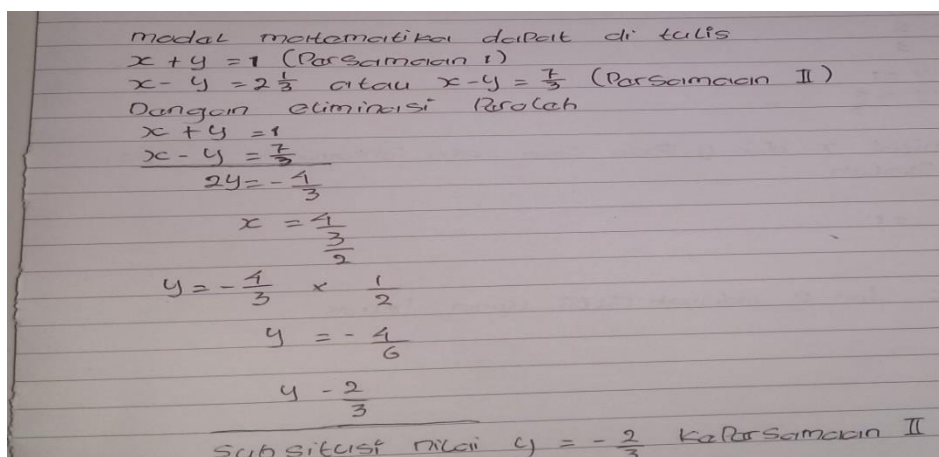 modal matematika dapat di tulis
x + y = 1 (Parsamaan 1)
x - y = 2 1/3 atau x - y = 7/3 (Parsamaan II)
Dangan eliminasi Paroleh
x + y = 1
x - y = 7/3
2y = - 4/3
x = 4/3/2
y = - 4/3 × 1/2
y = - 4/6
y - 2/3
Subsitusi nilai y = - 2/3 kaParsamaan II